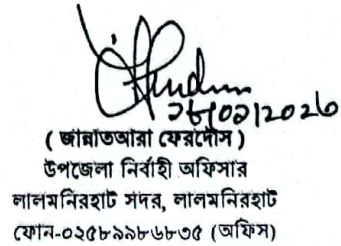 ২৮/০১/২০২৬
( জান্নাতআরা ফেরদৌস )
উপজেলা নির্বাহী অফিসার
লালমনিরহাট সদর, লালমনিরহাট
ফোন-০২৫৮৯৯৮৬৮৩৫ (অফিস)